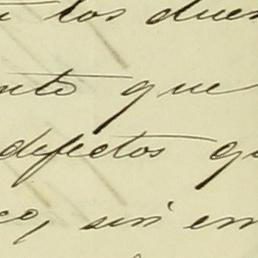 los dues
nto que
defectos qu
co, sin em